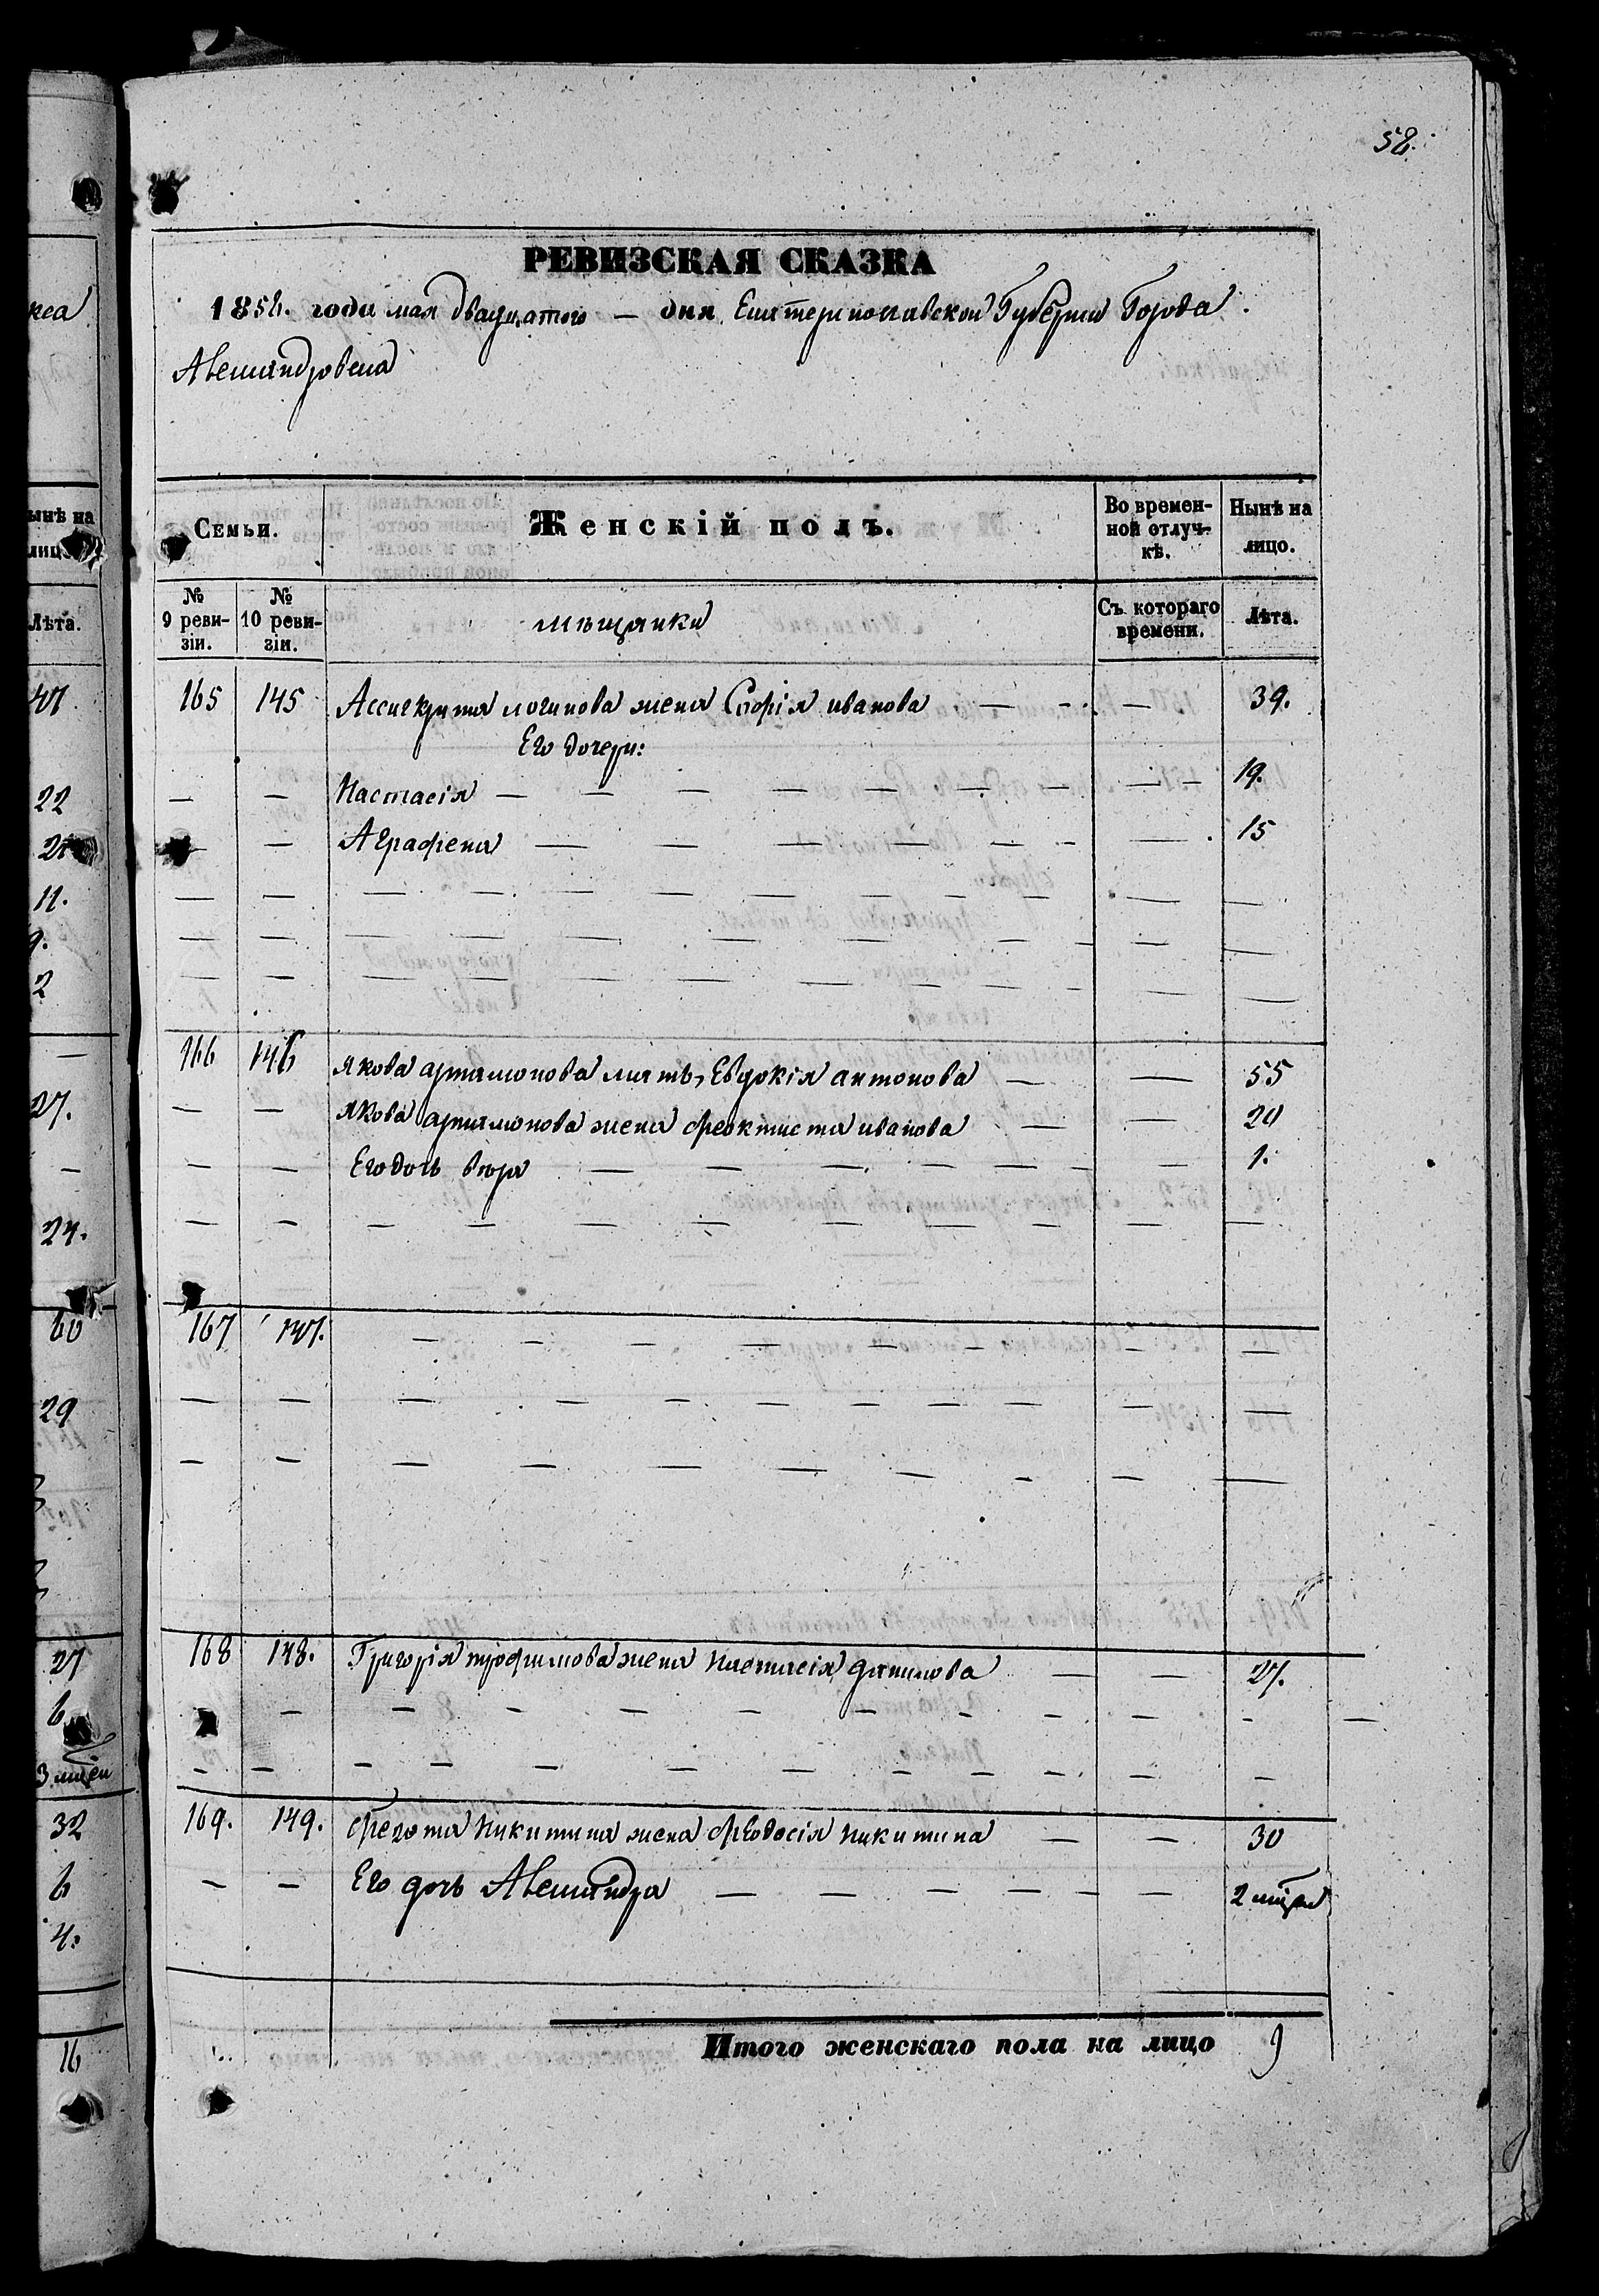 58.
РЕВИЗСКАЯ СКАЗКА
1858. года мая двадцатого — дня Екатеринославской Губернии Города
Александровска
Семьи.
Женскій полъ.
Во времен-
ной отлуч-
кѣ.
Нынѣ на
лицо.
№
9 реви-
зіи.
№
10 реви-
зіи.
мѣщанки
Съ котораго
времени.
Лѣта.
165 145 Ассигкрита логинова жена Софія иванова — — — 39.
Его дочери:
— — Настасія — — — — — — — — — 19.
— — Аграфена — — — — — — — 15
166 146 Якова артамонова мать, Евдокія антонова — — 55
— — Якова артамонова жена феоктиста иванова — — 20
— — Его дочь вѣра — — — — — — — 1.
167 147.
168 148. Григорія трофимова жена настасія данилова — — 27.
169. 149. Федота Никитина жена Феодосія Никитина — — 30
— — Его дочь Александра — — — — — — 2 мѣсяца
Итого женскаго пола на лицо 9
ынѣ на
лицо
Лѣта.
47
22
11.
9.
2
27.
24.
60
29
27
6
32
6
4.
16